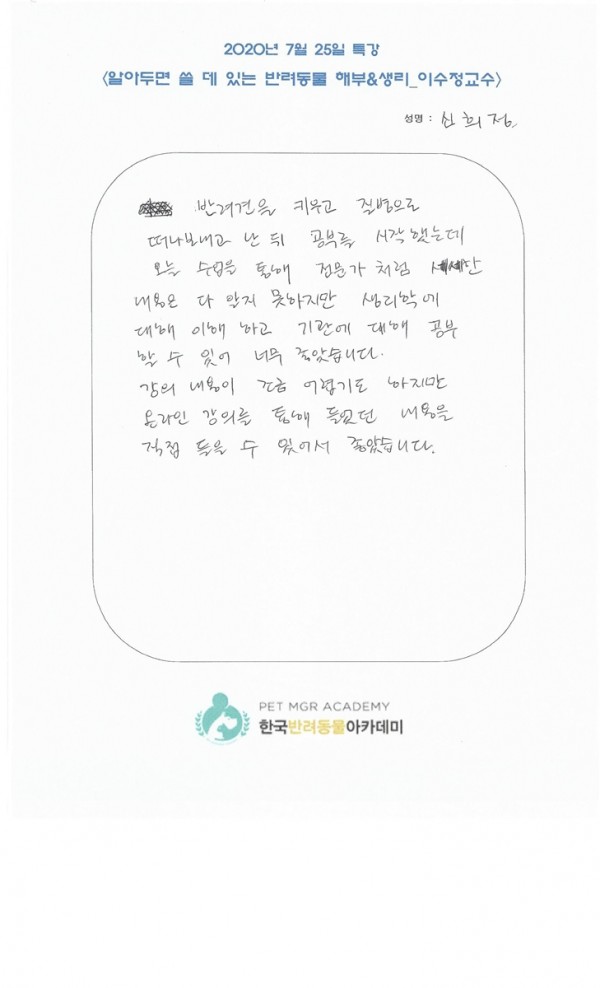 2020년 7월 25일 특강
<알아두면 쓸 데 있는 반려동물 해부&생리_이수정교수>
성명 : 신희정
반려견을 키우고 질병으로
떠나보내고 난 뒤 공부를 시작했는데
오늘 수업을 통해 전문가 처럼 세세한
내용은 다 알지 못하지만 생리학에
대해 이해 하고 기관에 대해 공부
할 수 있어 너무 좋았습니다.
강의 내용이 조금 어렵기도 하지만
온라인 강의를 통해 들었던 내용을
직접 들을 수 있어서 좋았습니다.
PET MGR ACADEMY
한국반려동물아카데미